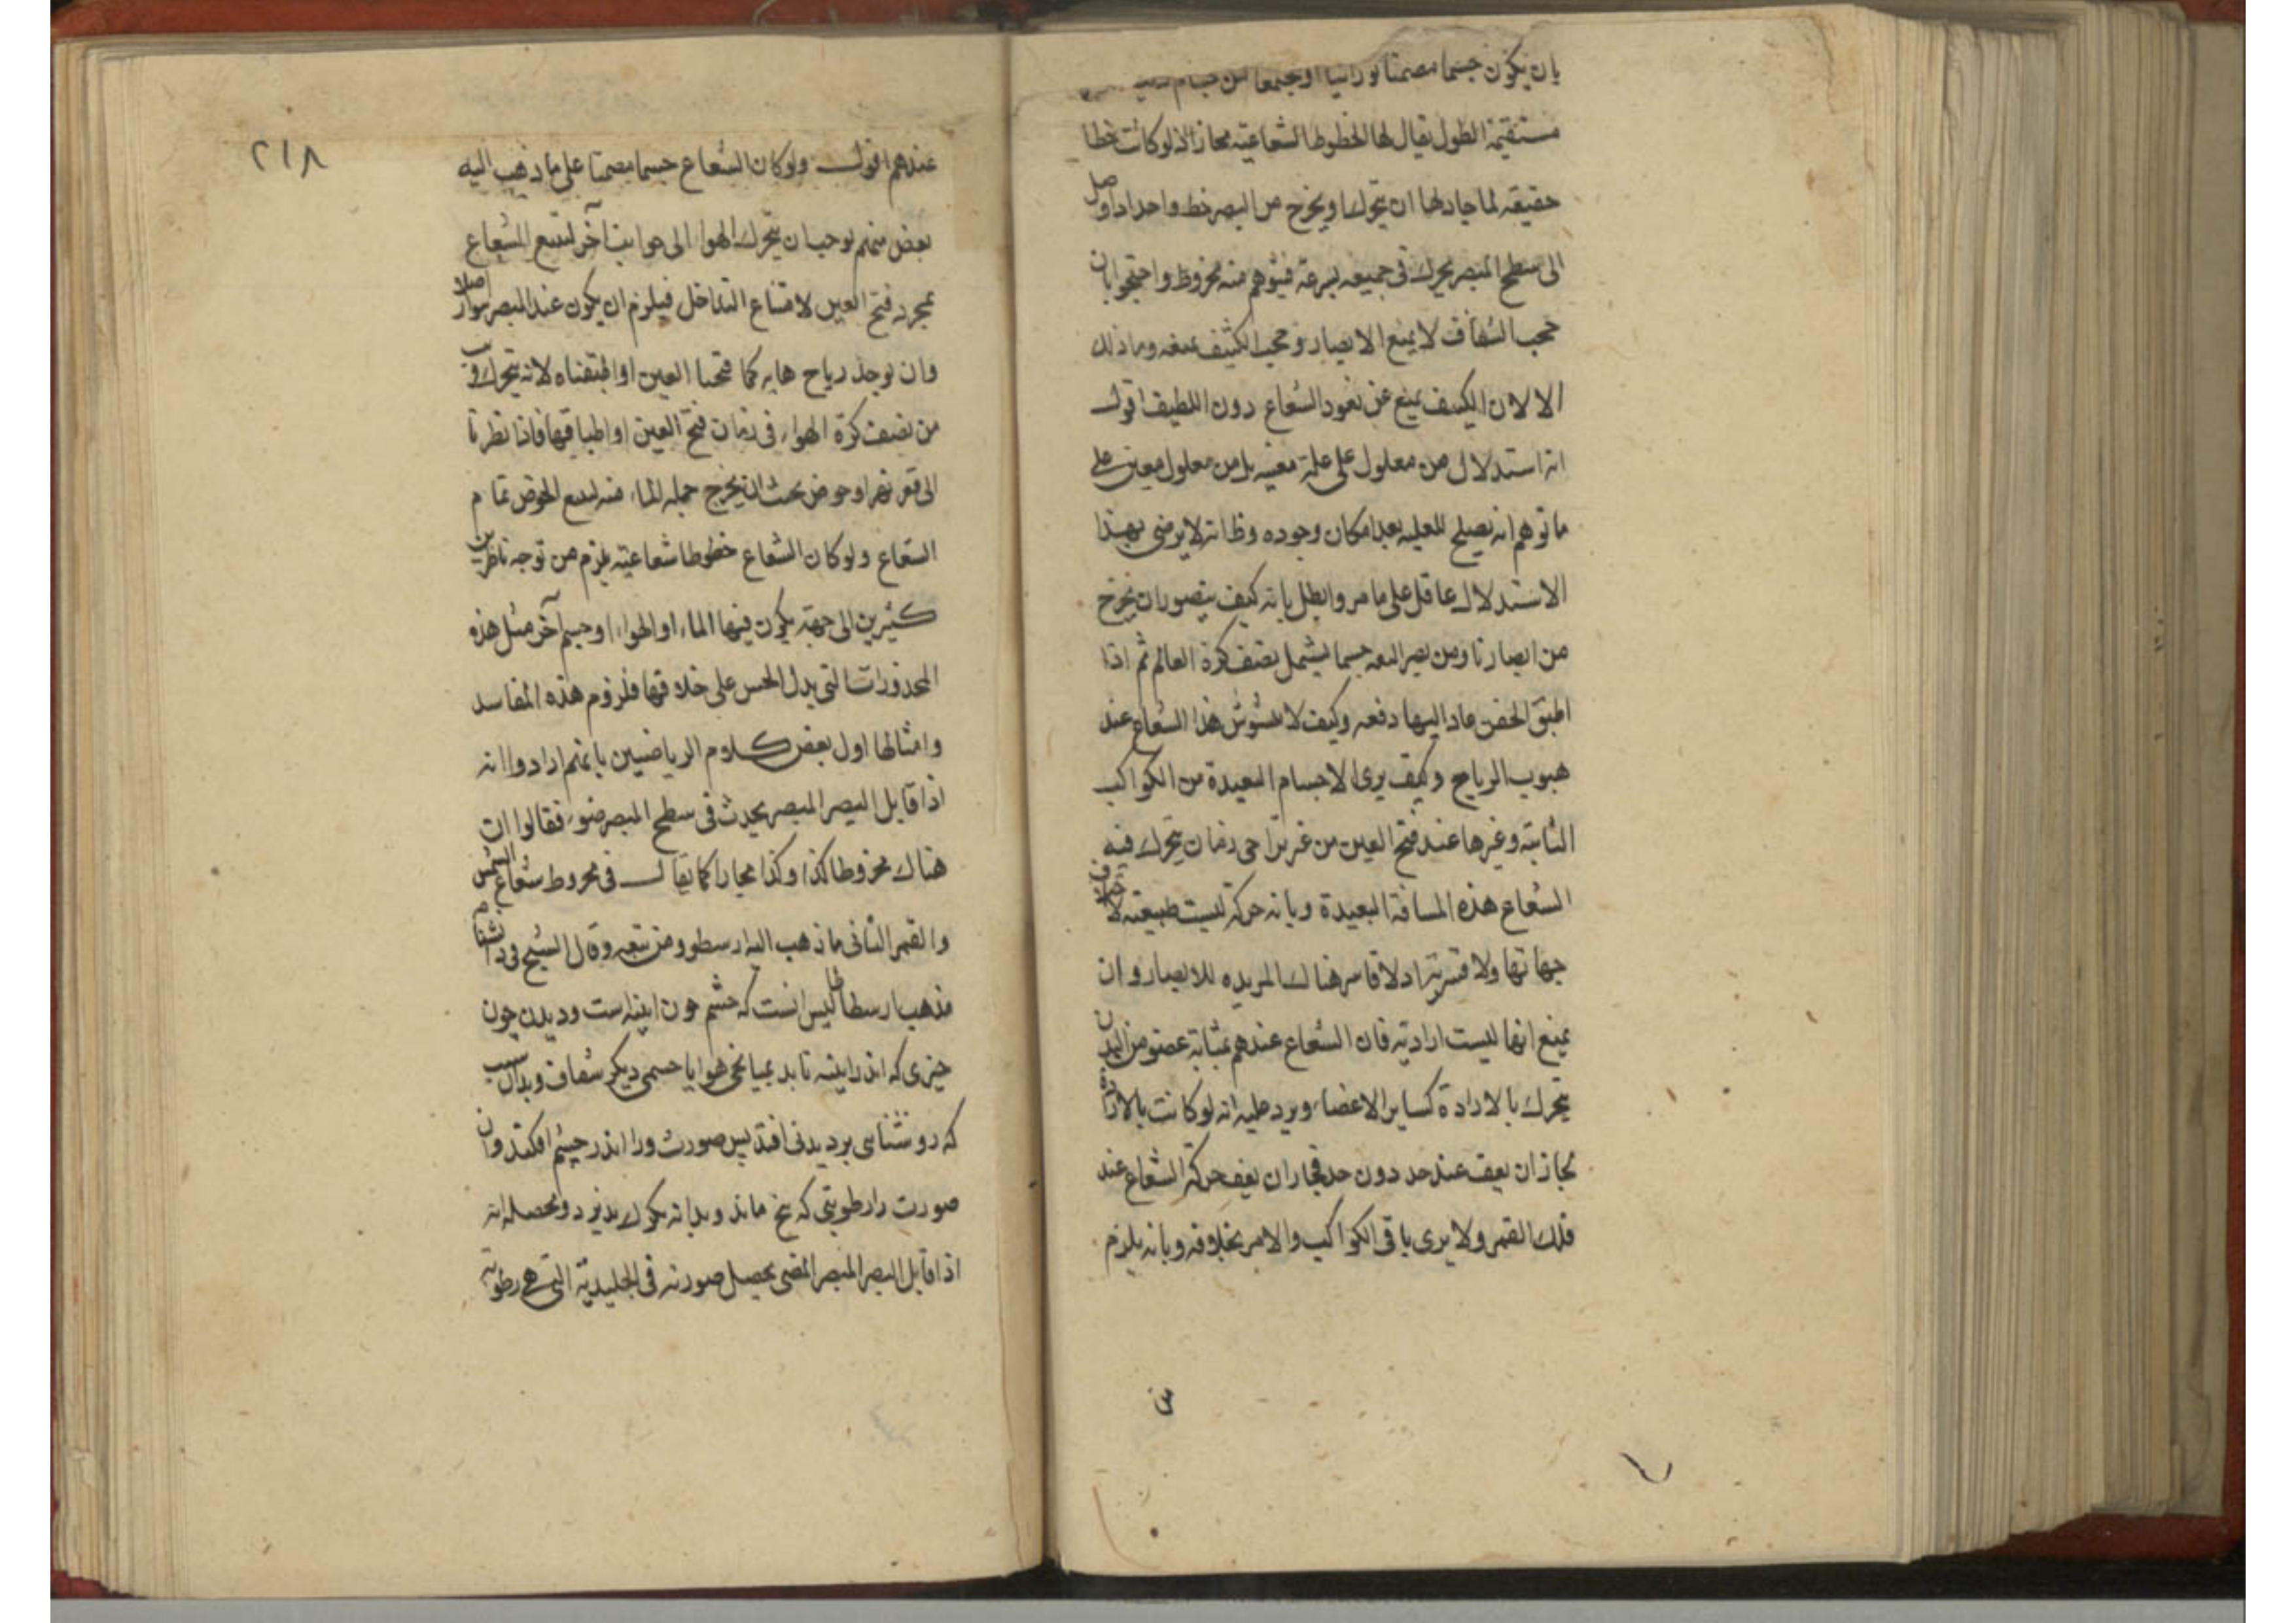 بان يكون جسما مصمتا نورانيا او مجتمعا من
مستقيمة الطول يقال لها الخطوط الشعاعية مجازا اذ لو كانت خطا
حقيقة لما جاز لها ان يتحرك او يخرج من البصر خط واحد اذا وصل
الى سطح المبصر يحرك فى جميعه بسرعة فيتوهم منه مخروط واحتجوا بان
حجب الشفاف لا يمنع الابصار وحجب الكثيف يمنعه وما ذلك
الا لان الكثيف يمنع عن نفوذ الشعاع دون اللطيف اقول
انه استدلال من معلول على علة معينة بل من معلول معين على
ما توهم انه يصلح للعلية بعد امكان وجوده وظا انه لا يرضى بهذا
الاستدلال عاقل على ما مر وابطل بانه كيف يتصور ان يخرج
من ابصارنا ومن بصر البقه جسما يشمل نصف كرة العالم ثم اذا
اطبق الجفن عاد اليها دفعه وكيف لا يتشوش هذا الشعاع عند
هبوب الرياح وكيف يرى الاجسام البعيدة من الكواكب
الثابتة وغيرها عند فتح العين من غير تراخى زمان يتحرك فيه
الشعاع هذه المسافة البعيدة وبانه حركة ليست طبيعته لاختلاف
جهاتها ولا قسرية اذ لا قاسر هناك المريده للابصار وان
يمنع انها ليست ارادية فان الشعاع عندهم بمثابة عضو من البدن
يتحرك بالارادة كساير الاعضاء ويرد عليه انه لو كانت بالارادة
لجاز ان يقف عند حد دون حد فجاز ان يقف حركة الشعاع عند
فلك القمر ولا يرى باقى الكواكب والامر بخلافه وبانه يلزم
٢١٨
عندهم اقول ولو كان الشعاع جسما مصمتا على ما ذهب اليه
بعض منهم لوجب ان يتحرك الهوا الى جوانب آخر ليتسع الشعاع
بمجرد فتح العين لامتناع التداخل فيلزم ان يكون عند المبصر سوار اصلا
وان يوجد رياح هابه كما فتحنا العين او اطبقناه لانه يتحرك قريب
من نصف كرة الهواء فى زمان فتح العين او اطباقها فاذا نظرنا
الى قعر نهر او حوض بحيث ان يخرج جملة الماء منه ليسع الحوض تمام
الشعاع ولو كان الشعاع خطوطا شعاعية يلزم من توجه ناظرين
كثيرين الى جهة يكون فيها الماء او الهواء او جسم آخر مثل هذه
المحذورات التى يدل الحس على خلافها فلزوم هذه المفاسد
وامثالها اول بعض كلام الرياضيين بانهم ارادوا انه
اذا قابل البصر المبصر يحدث فى سطح المبصر ضوء فقالوا ان
هناك مخروطا كذا وكذا مجازا كما يقال فى مخروط شعاع الشمس
والقمر الثانى ما ذهب اليه ارسطو ومن تبعه وقال الشيخ فى دانشنامه
مذهب ارسطاطاليس انست كه چشم چون اينه است وديدن چون
چيزى كه اندر اينه تابد بميانجى هوا يا جسمى ديكر شفاف وبدان سبب
كه روشنايى بر ديدنى افتد پس صورت ورا اندر چشم افكند وان
صورت را رطوبتى كه يخ ماند وبدانه تكرك بذيرد ومحصله انه
اذا قابل البصر المبصر المضى يحصل صورته فى الجليدية التى هى رطوبة